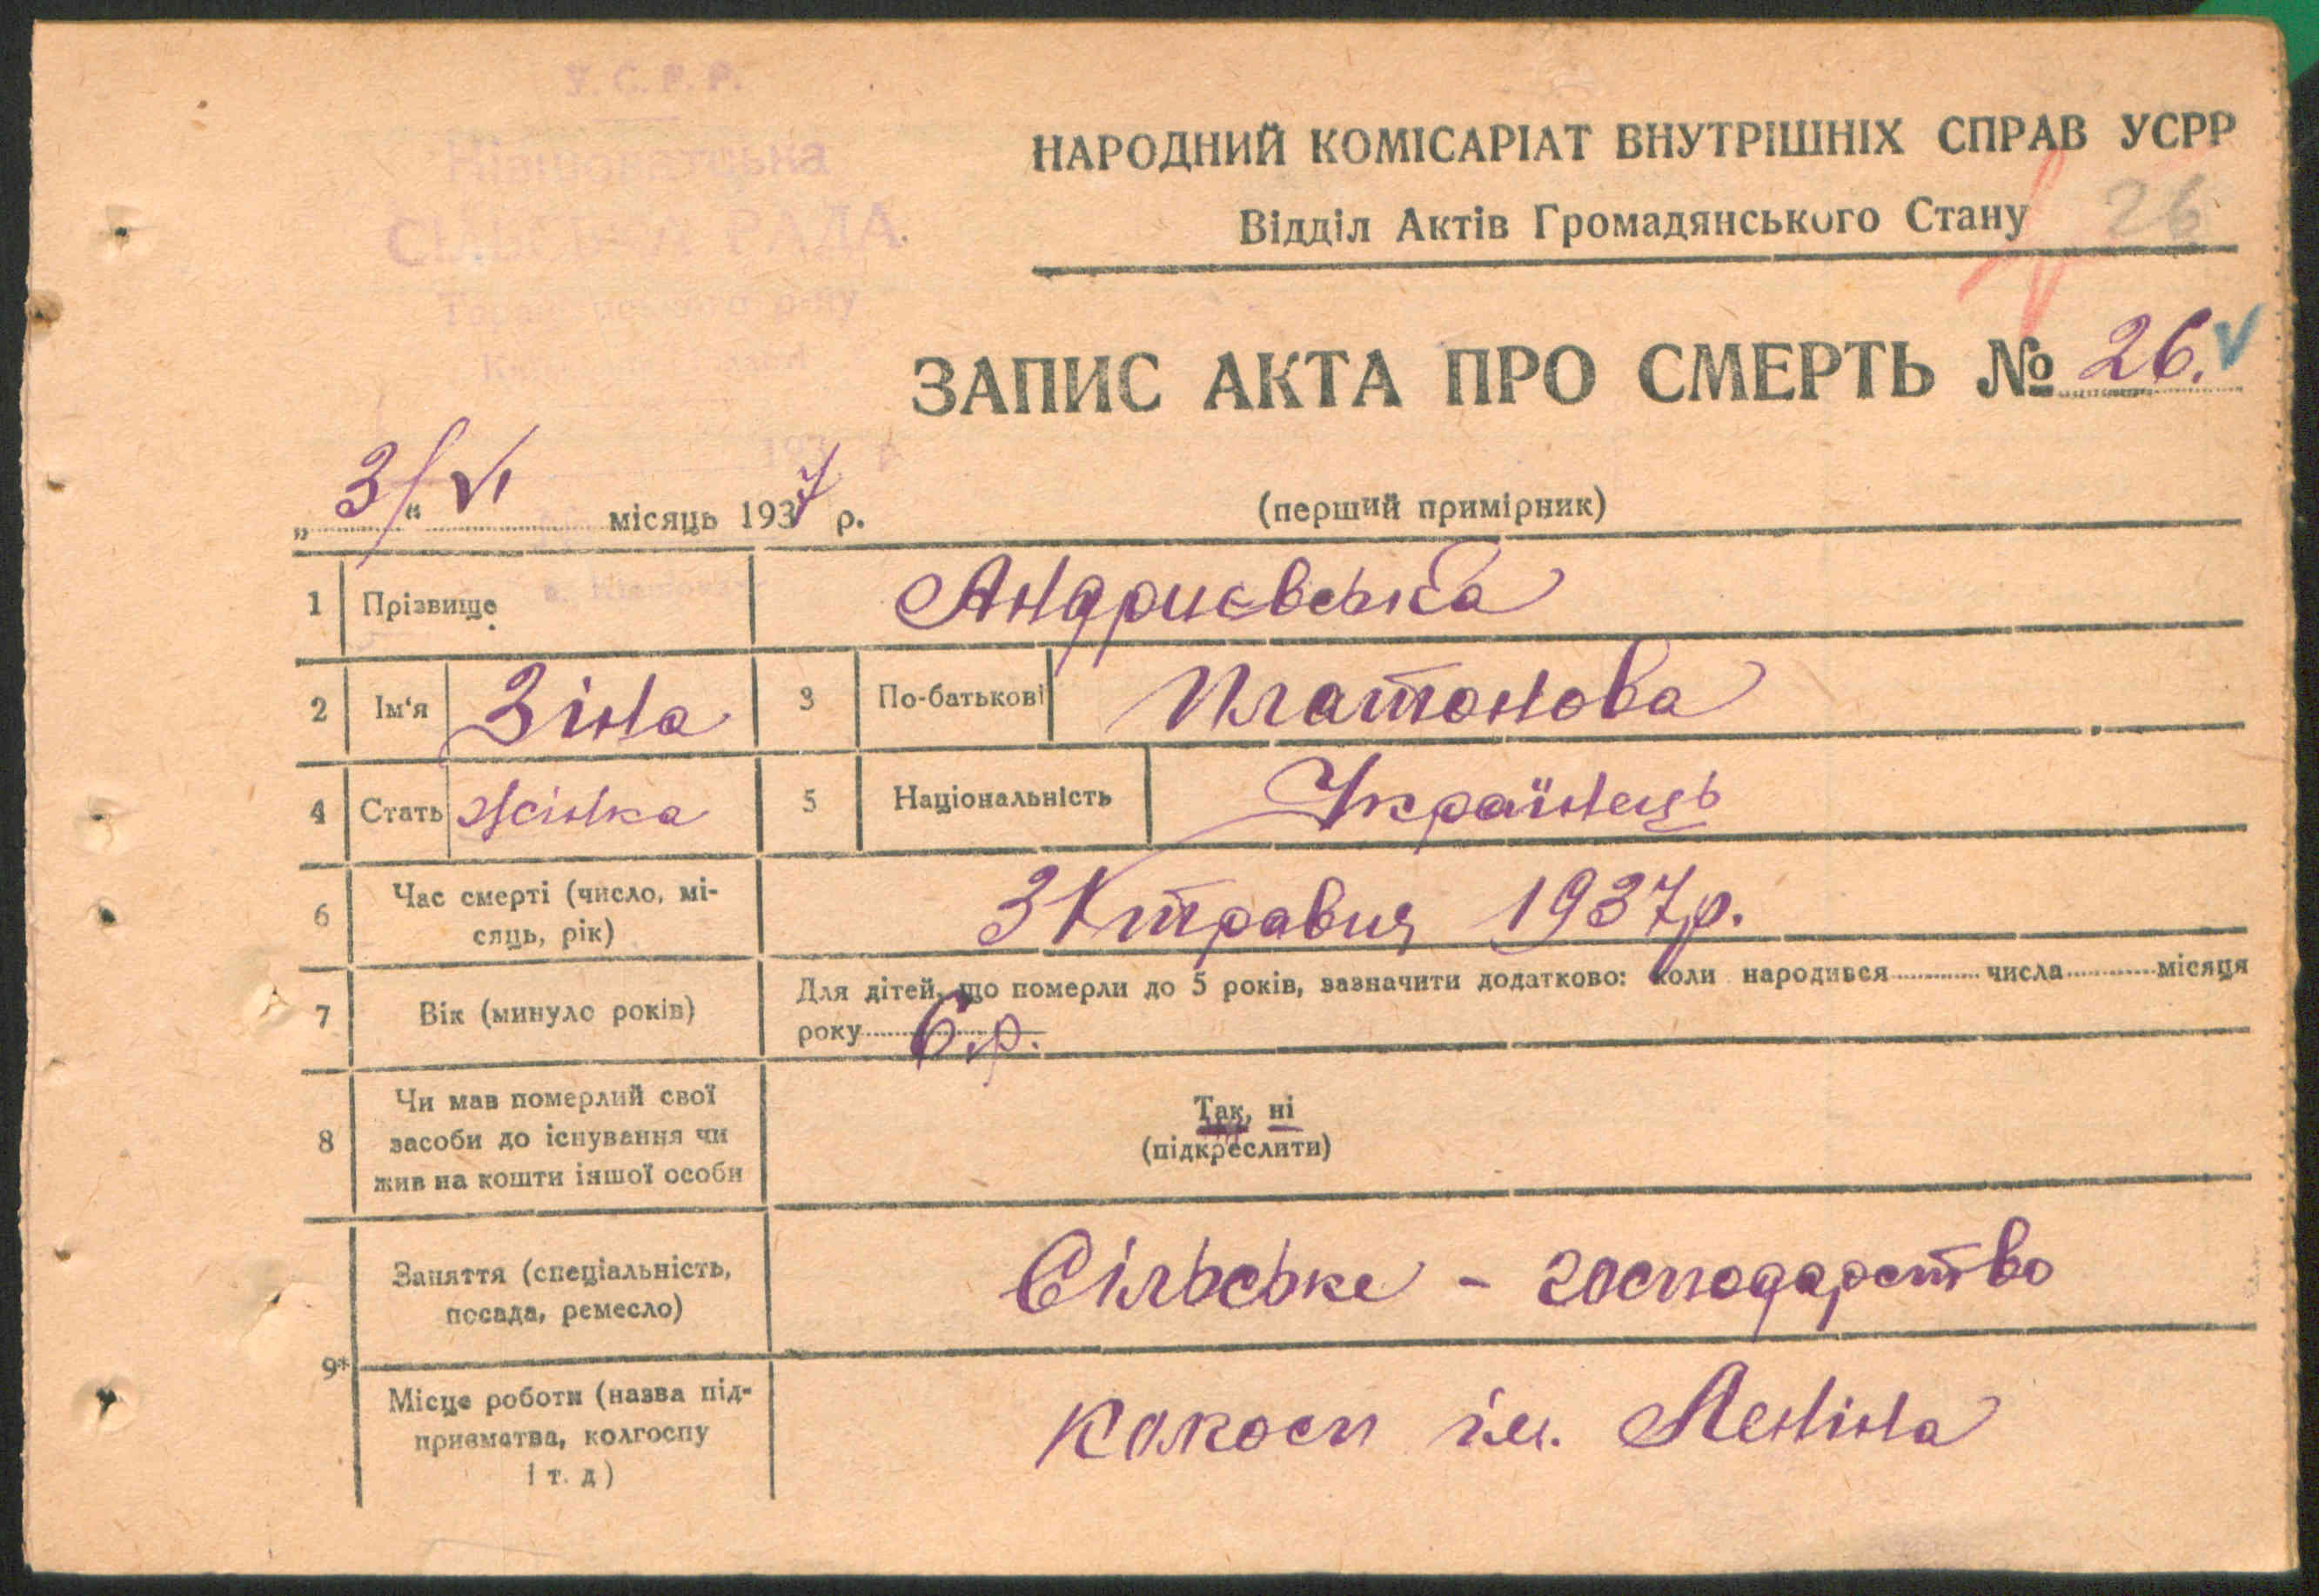 У.С.Р.Р.
СІЛЬСЬКА РАДА
НАРОДНИЙ КОМІСАРІАТ ВНУТРІШНІХ СПРАВ УСРР
Відділ Актів Громадянського Стану
26
ЗАПИС АКТА ПРО СМЕРТЬ № 26.
„3/“ VI місяць 1937 р.
(перший примірник)
1 Прізвище Андриєвська
2 Ім'я Зіна 3 По-батькові Платонова
4 Стать жінка 5 Національність Українець
6 Час смерті (число, мі-
сяць, рік)
травня 1937 р.
7 Вік (минуло років)
Для дітей, що померли до 5 років, зазначити додатково: коли народився ........ числа ........ місяця
року 6 р.
8 Чи мав померлий свої
засоби до існування чи
жив на кошти іншої особи
Так, ні
(підкреслити)
9* Заняття (спеціальність,
посада, ремесло)
Сільське - господарство
Місце роботи (назва під-
приємства, колгоспу
і т. д)
Колкосп ім. Леніна